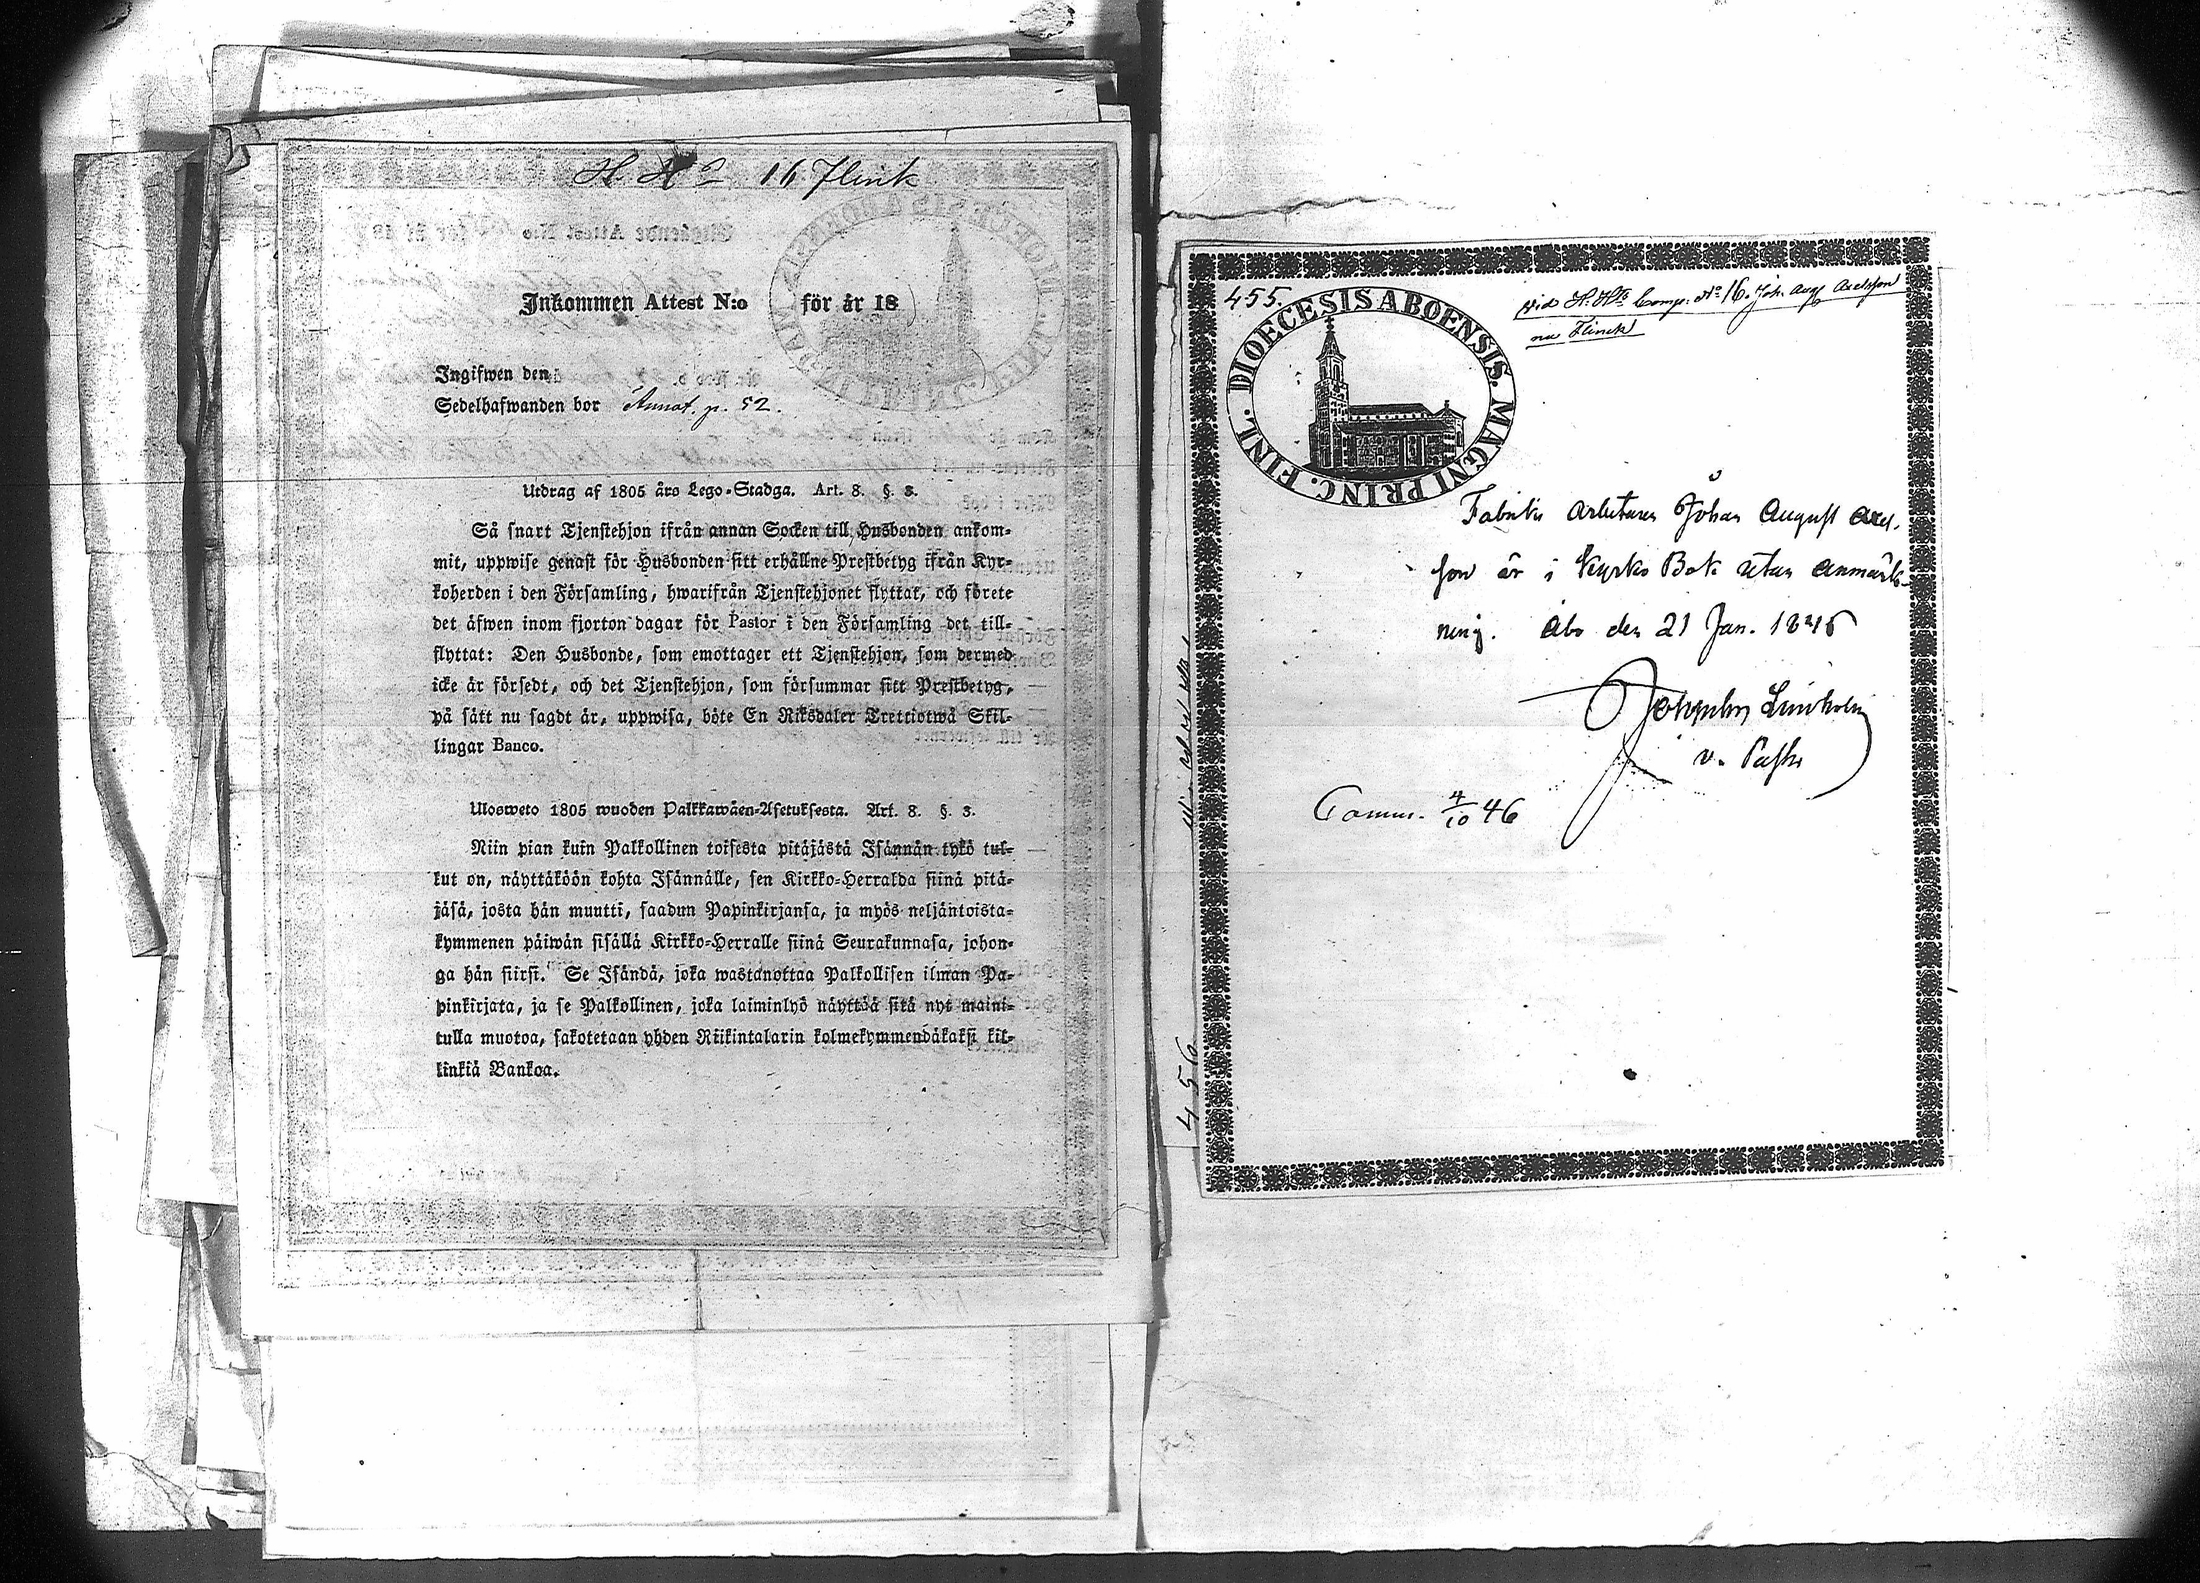 H. H:s 16. Flink
Inkommen Attest N:o för år 18
Ingifwen den
Sedelhafwanden bor Annot. p. 52.
Utdrag af 1805 års Lego-Stadga. Art. 8. §. 3.
Så snart Tjenstehjon ifrån annan Socken till Husbonden ankom-
mit, uppwise genast för Husbonden sitt erhållne Prestbetyg ifrån Kyr-
koherden i den Församling, hwarifrån Tjenstehjonet flyttat, och förete
det äfwen inom fjorton dagar för Pastor i den Församling det till-
flyttat: Den Husbonde, som emottager ett Tjenstehjon, som dermed
icke är försedt, och det Tjenstehjon, som försummar sitt Prestbetyg,
på sätt nu sagdt är, uppwisa, böte En Riksdaler Trettiotwå Skil-
lingar Banco.
Ulosweto 1805 wuoden Palkkawäen-Asetuksesta. Art. 8. §. 3.
Niin pian kuin Palkollinen toisesta pitäjästä Isännän tykö tul-
kut on, näyttäköön kohta Isännälle, sen Kirkko-Herralda siinä pitä-
jäsä, josta hän muutti, saadun Papinkirjansa, ja myös neljäntoista-
kymmenen päiwän sisällä Kirkko-Herralle siinä Seurakunnasa, johon-
ga hän siirsi. Se Isändä, joka wastanottaa Palkollisen ilman Pa-
pinkirjata, ja se Palkollinen, joka laiminlyö näyttää sitä nyt maini-
tulla muotoa, sakotetaan yhden Riikintalarin kolmekymmendäkaksi kil-
linkiä Bankoa.
455.
vid H. H:s Comp. No 16. Joh. Aug. Axelsson
nu Flinck
DIOECESIS ABOENSIS. MAGNI PRINC. FINL.
Fabriks arbetaren Johan August Axel-
son är i Kyrko Bok utan anmärk-
ning. Åbo den 21 Jan. 1846
Lindholm
v. Past.
Comm. 4/10 46
456